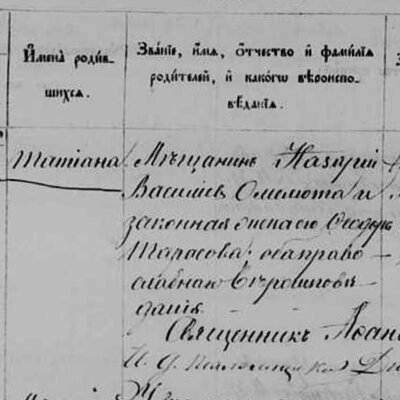 Имена родив-
шихся.
Званіе, имя, отчество и фамилія
родителей, и какого вѣроиспо-
вѣданія.
Татіана
Мѣщанинъ Назарій
Василіев Омелюта и
законная жена его Ѳеодора
Тарасова; оба право-
славнаго вѣроисповѣ-
данія
Священникъ Іоан
И. д. Псаломщика